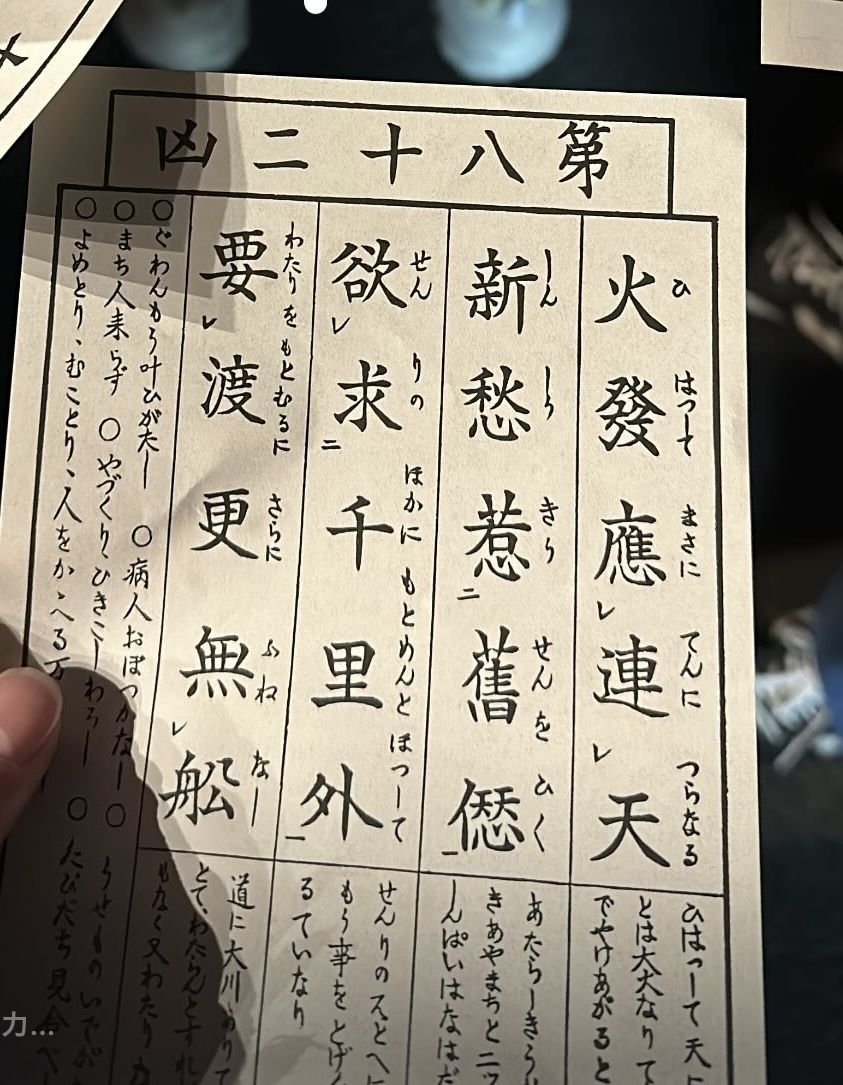 第八十二凶
火發應レ連レ天
ひ はつして まさに てんに つらなる
新愁惹二舊愆一
しん しう きり せんを ひく
欲レ求二千里外一
せんりの ほかに もとめんと ほつして
要レ渡更無レ船
わたりをもとむるに さらに ふね なし
ひはつして天に
とは大火なりて
でやけあがると
あたらしきうれ
きあやまちと二ツ
しんぱいはなはだ
せんりのそとへに
もう事をとげん
るていなり
道に大川ありて
とて、わたらんとすれ
もなく又わたり
○ぐわんもう叶ひがたし ○病人おぼつかなし ○うせものいでが
○まち人来らず ○やづくり、ひきこしわろし ○たびだち見合べし
○よめとり、むことり、人をかゝへる万
カ...